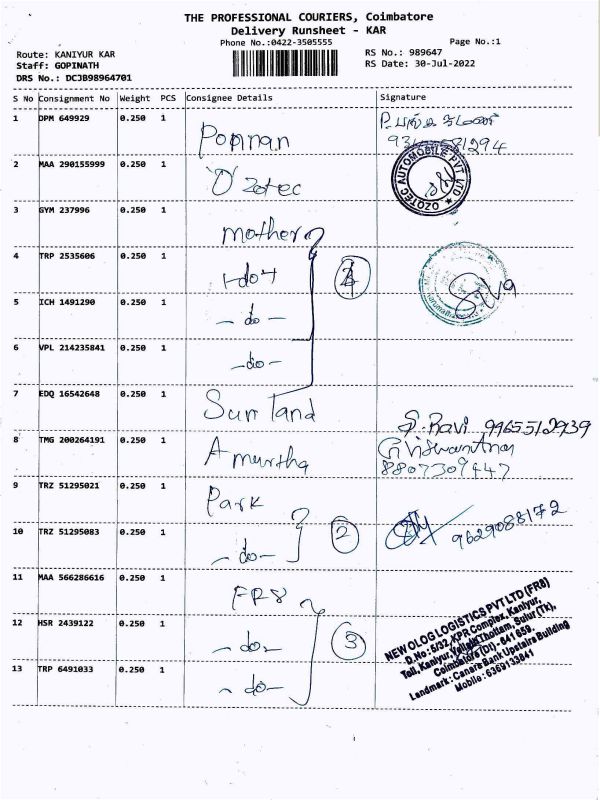 THE PROFESSIONAL COURIERS, Coimbatore
Delivery Runsheet - KAR
Phone No.:0422-3505555 Page No.:1
Route: KANIYUR KAR RS No.: 989647
Staff: GOPINATH RS Date: 30-Jul-2022
DRS No.: DCJB98964701
S No Consignment No Weight PCS Consignee Details Signature
1 DPM 649929 0.250 1
2 MAA 290155999 0.250 1 O Zotec OZOTEC AUTOMOBILE PVT LTD
3 GYM 237996 0.250 1 Mother
4 TRP 2535606 0.250 1 -do-
5 ICH 1491290 0.250 1 -do- Silva
6 VPL 214235841 0.250 1 -do-
7 EDQ 16542648 0.250 1 Sun Tand S. Ravi 9965512939
8 TMG 200264191 0.250 1 Amurtha G Viswanthan
8807309447
9 TRZ 51295021 0.250 1 Park
10 TRZ 51295083 0.250 1 -do- 2 9629088172
11 MAA 566286616 0.250 1 FR8
12 HSR 2439122 0.250 1 -do- 3
13 TRP 6491033 0.250 1 -do-
NEW OLOG LOGISTICS PVT LTD (FR8)
D.No: 5/32, KPR Complex, Kaniyur,
Toll, Kaniyur, Thottam, Sulur (Tk),
Coimbatore (Dt) - 641 659.
Landmark: Canara Bank Upstairs Building
Mobile: 6369133841